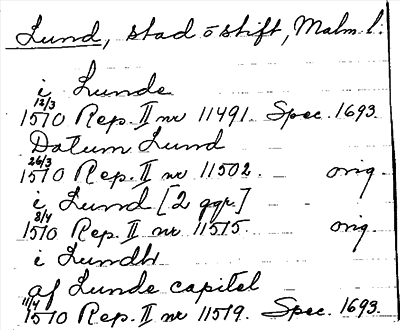 Lund, stad o stift, Malm. l.
i Lunde
12/3 1510 Rep. II nr 11491. Spec. 1693.
Datum Lund
26/3 1510 Rep. II nr 11502. orig.
i Lund [2 ggr.]
8/4 1510 Rep. II nr 11515. orig.
i Lundh
af Lunde capitel
11/4 1510 Rep. II nr 11519. Spec. 1693.